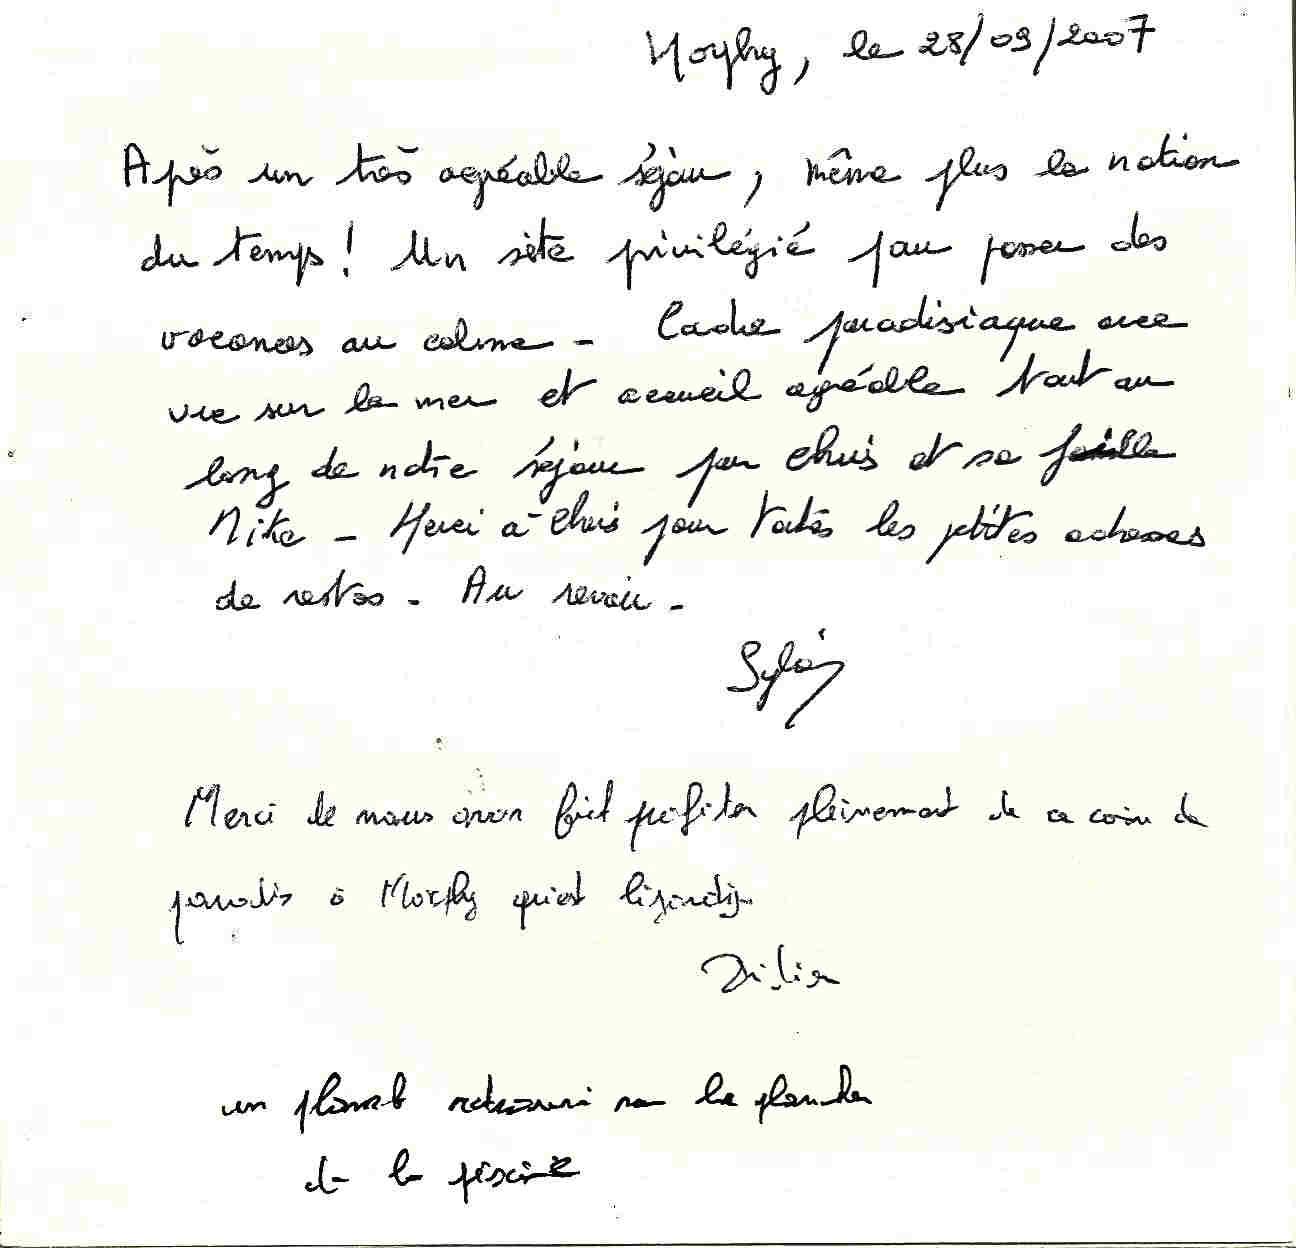 Morphy, le 28/09/2007
Après un très agréable séjour, même plus la notion
du temps! Un site privilégié pour passer des
vacances au calme - Cadre paradisiaque avec
vue sur la mer et accueil agréable tout au
long de notre séjour par Chris et sa fille
Nike - Merci à Chris pour toutes les petites adresses
de restos - Au revoir -
Sylvie
Merci de nous avoir fait profiter pleinement de ce coin de
paradis à Morphy
Didier
un plomb retrouvé sur le plancher
de la piscine